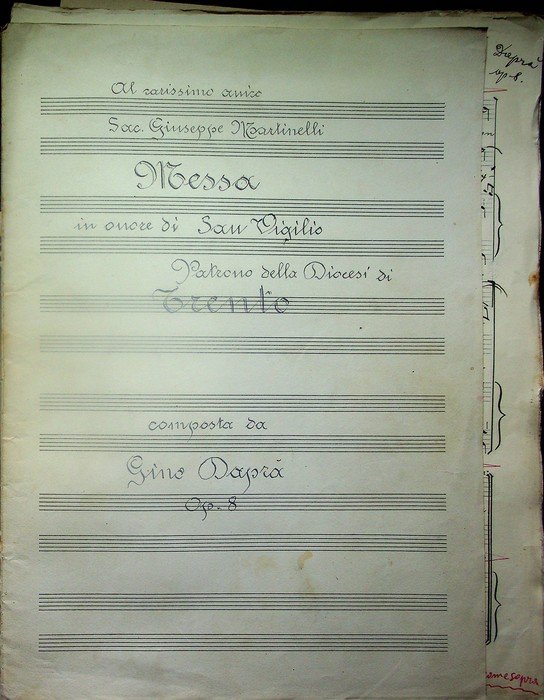 Al carissimo amico
Sac. Giuseppe Martinelli
Messa
in onore di San Vigilio
Patrono della Diocesi di
Trento
composta da
Gino Daprá
Op. 8
Daprá
op. 8.
come sopra